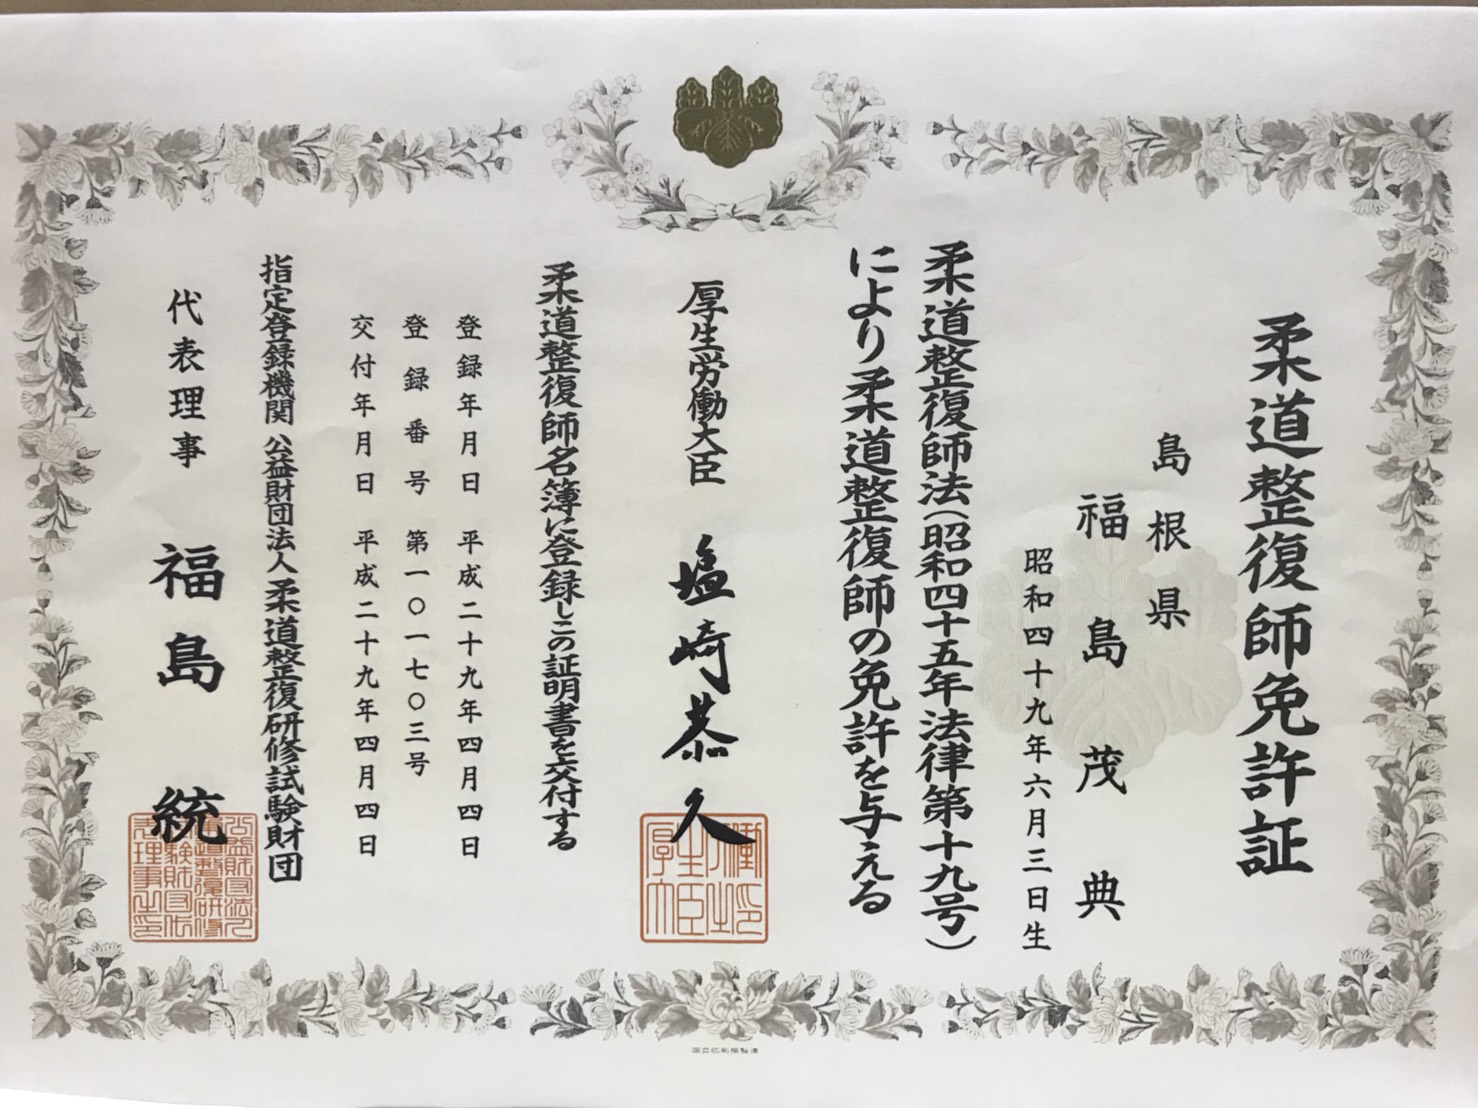 柔道整復師免許証
島根県
福島茂典
昭和四十九年六月三日生
柔道整復師法(昭和四十五年法律第十九号)
により柔道整復師の免許を与える
厚生労働大臣 塩崎恭久
柔道整復師名簿に登録しこの証明書を交付する
登録年月日 平成二十九年四月四日
登録番号 第一〇一七〇三号
交付年月日 平成二十九年四月四日
指定登録機関 公益財団法人 柔道整復研修試験財団
代表理事 福島統